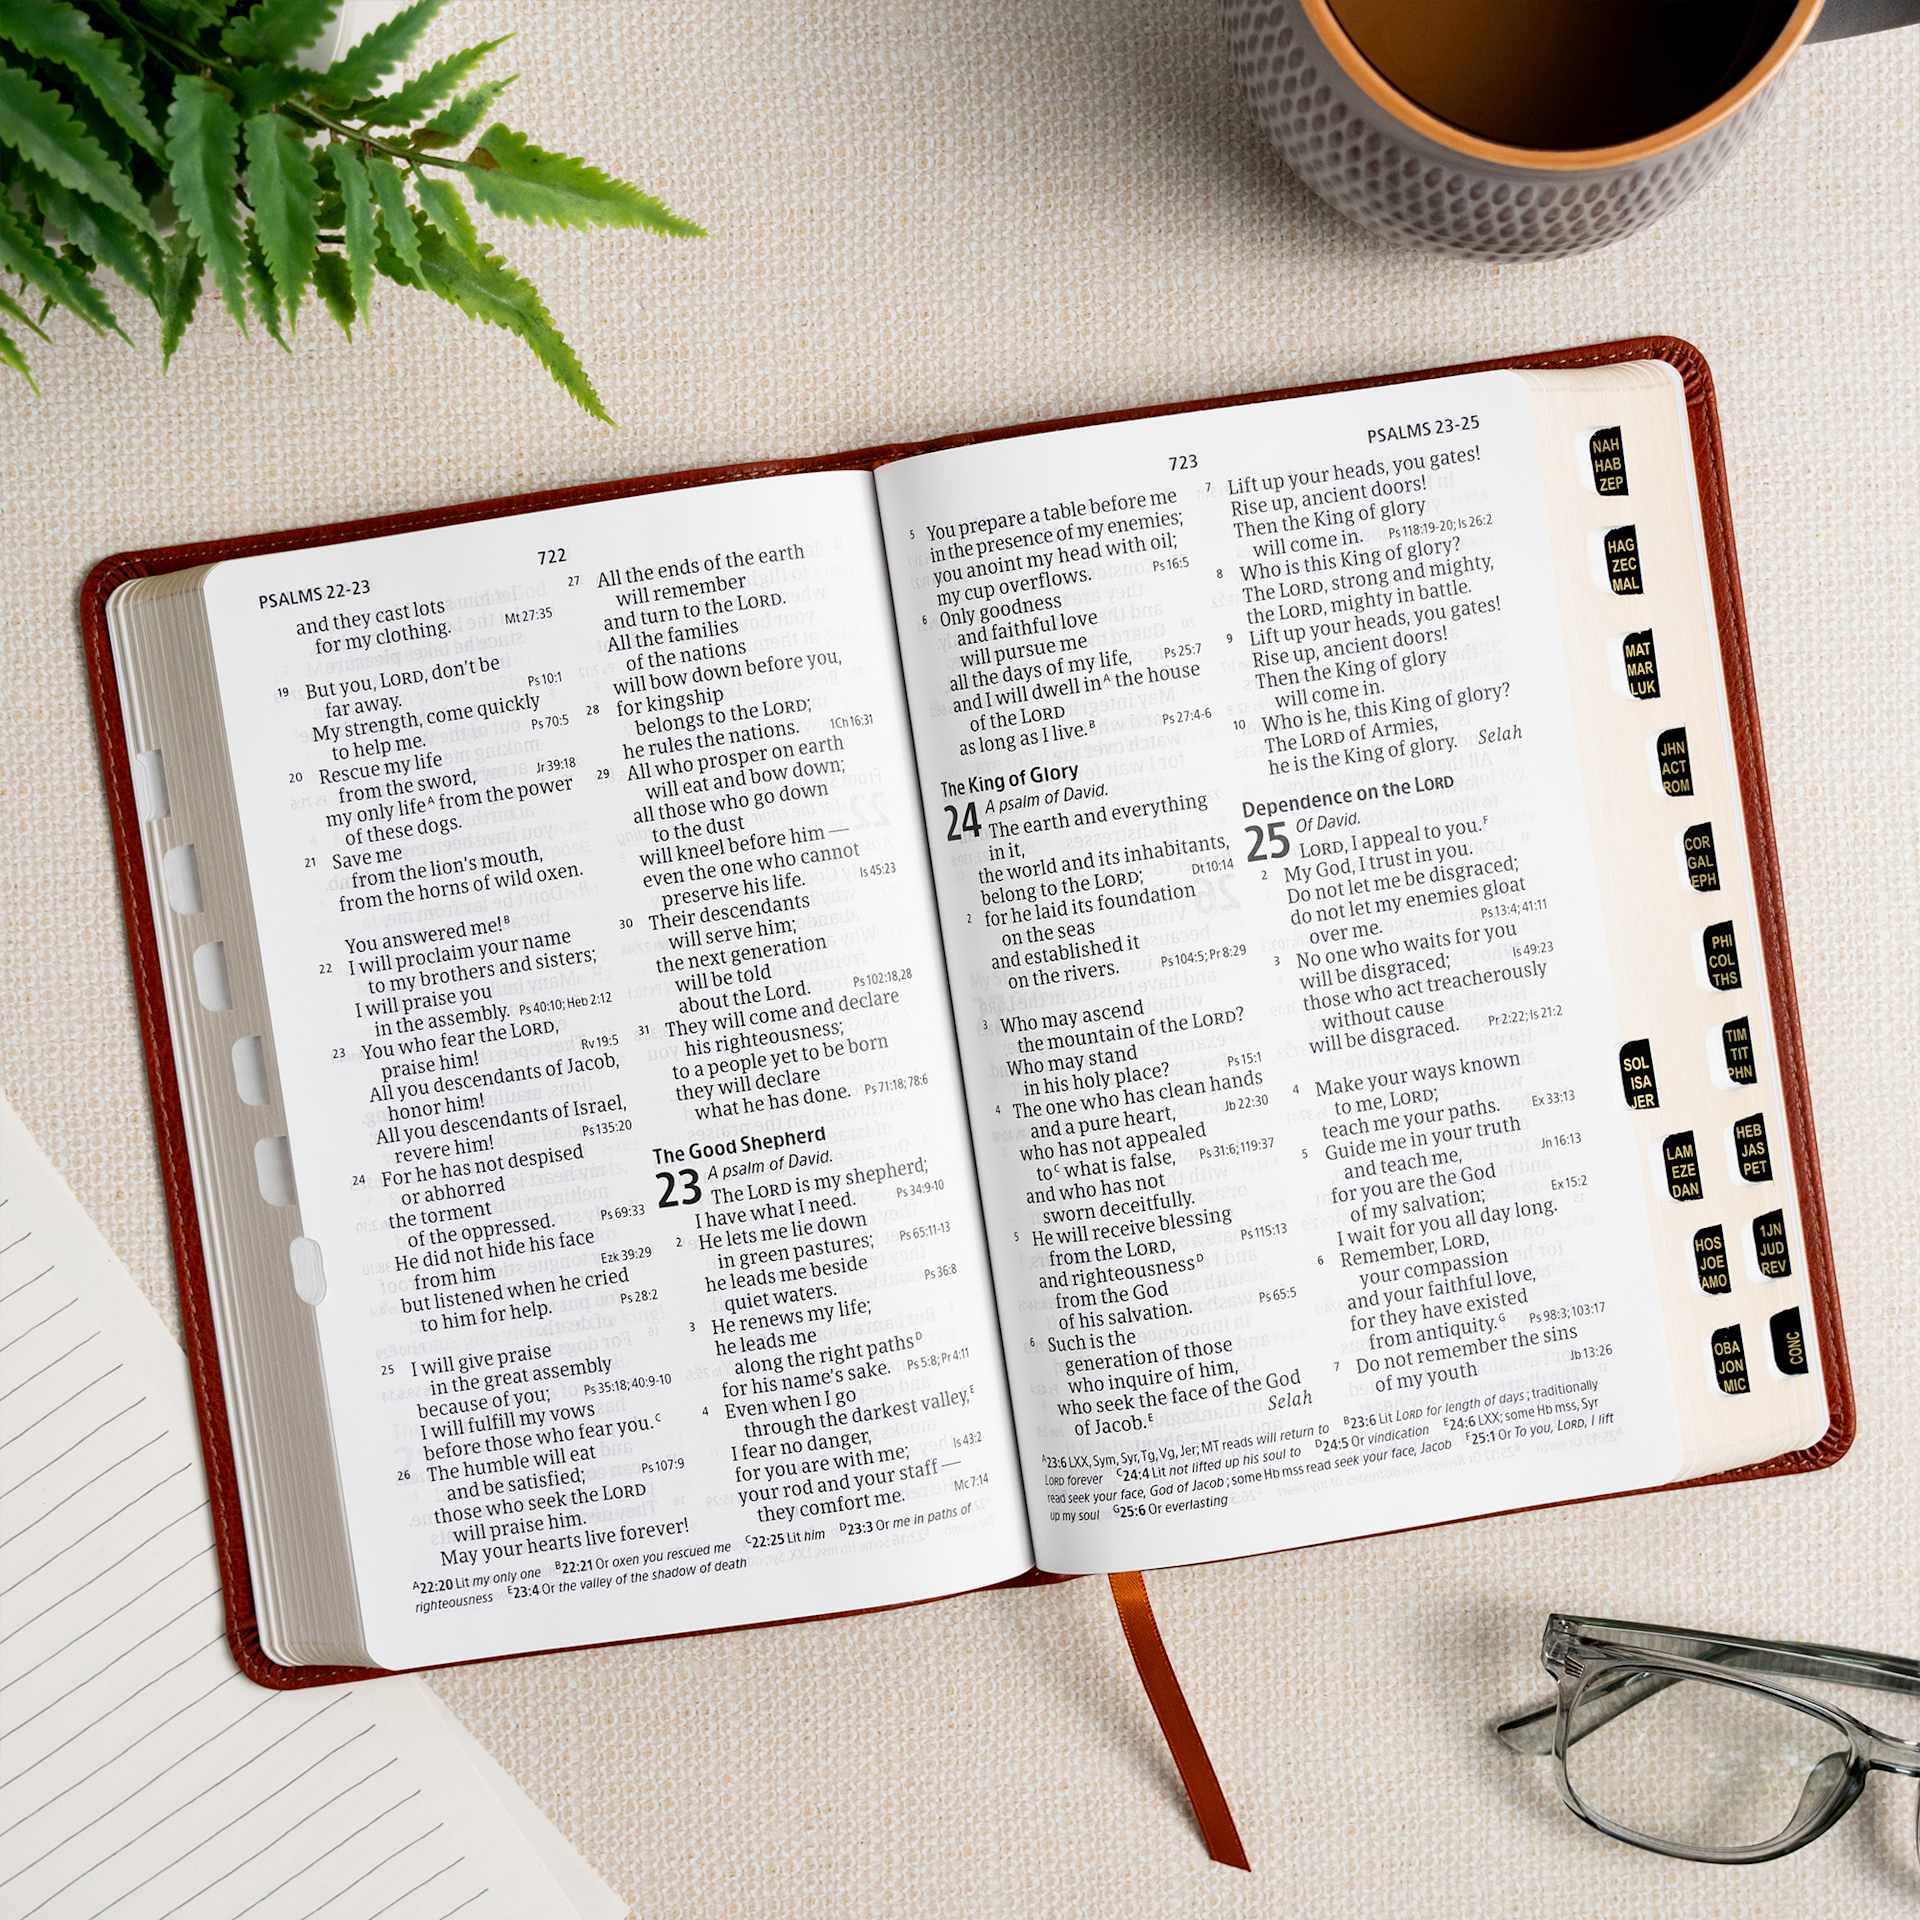 PSALMS 22-23
722
and they cast lots
for my clothing. Mt 27:35
19 But you, LORD, don't be
far away. Ps 10:1
My strength, come quickly
to help me. Ps 70:5
20 Rescue my life
from the sword, Jr 39:18
my only lifeA from the power
of these dogs.
21 Save me
from the lion's mouth,
from the horns of wild oxen.
You answered me!B
22 I will proclaim your name
to my brothers and sisters;
I will praise you
in the assembly. Ps 40:10; Heb 2:12
23 You who fear the LORD,
praise him! Rv 19:5
All you descendants of Jacob,
honor him!
All you descendants of Israel,
revere him! Ps 135:20
24 For he has not despised
or abhorred
the torment
of the oppressed. Ps 69:33
He did not hide his face
from him Ezk 39:29
but listened when he cried
to him for help. Ps 28:2
25 I will give praise
in the great assembly
because of you; Ps 35:18; 40:9-10
I will fulfill my vows
before those who fear you.C
26 The humble will eat
and be satisfied; Ps 107:9
those who seek the LORD
will praise him.
May your hearts live forever!
27 All the ends of the earth
will remember
and turn to the LORD.
All the families
of the nations
will bow down before you,
28 for kingship
belongs to the LORD;
he rules the nations. 1Ch 16:31
29 All who prosper on earth
will eat and bow down;
all those who go down
to the dust
will kneel before him —
even the one who cannot
preserve his life. Is 45:23
30 Their descendants
will serve him;
the next generation
will be told
about the Lord. Ps 102:18,28
31 They will come and declare
his righteousness;
to a people yet to be born
they will declare
what he has done. Ps 71:18; 78:6
The Good Shepherd
23 A psalm of David.
The LORD is my shepherd;
I have what I need. Ps 34:9-10
2 He lets me lie down
in green pastures; Ps 65:11-13
he leads me beside
quiet waters. Ps 36:8
3 He renews my life;
he leads me
along the right pathsD
for his name's sake. Ps 5:8; Pr 4:11
4 Even when I go
through the darkest valley,E
I fear no danger,
for you are with me; Is 43:2
your rod and your staff —
they comfort me. Mc 7:14
A22:20 Lit my only one B22:21 Or oxen you rescued me C22:25 Lit him D23:3 Or me in paths of
righteousness E23:4 Or the valley of the shadow of death
723
PSALMS 23-25
5 You prepare a table before me
in the presence of my enemies;
you anoint my head with oil;
my cup overflows. Ps 16:5
6 Only goodness
and faithful love
will pursue me
all the days of my life, Ps 25:7
and I will dwell inA the house
of the LORD
as long as I live.B Ps 27:4-6
The King of Glory
24 A psalm of David.
The earth and everything
in it,
the world and its inhabitants,
belong to the LORD; Dt 10:14
2 for he laid its foundation
on the seas
and established it
on the rivers. Ps 104:5; Pr 8:29
3 Who may ascend
the mountain of the LORD?
Who may stand
in his holy place? Ps 15:1
4 The one who has clean hands
and a pure heart, Jb 22:30
who has not appealed
toC what is false, Ps 31:6; 119:37
and who has not
sworn deceitfully.
5 He will receive blessing
from the LORD, Ps 115:13
and righteousnessD
from the God
of his salvation. Ps 65:5
6 Such is the
generation of those
who inquire of him,
who seek the face of the God
of Jacob.E Selah
7 Lift up your heads, you gates!
Rise up, ancient doors!
Then the King of glory
will come in. Ps 118:19-20; Is 26:2
8 Who is this King of glory?
The LORD, strong and mighty,
the LORD, mighty in battle.
9 Lift up your heads, you gates!
Rise up, ancient doors!
Then the King of glory
will come in.
10 Who is he, this King of glory?
The LORD of Armies,
he is the King of glory. Selah
Dependence on the LORD
25 Of David.
LORD, I appeal to you.F
2 My God, I trust in you.
Do not let me be disgraced;
do not let my enemies gloat
over me. Ps 13:4; 41:11
3 No one who waits for you
will be disgraced; Is 49:23
those who act treacherously
without cause
will be disgraced. Pr 2:22; Is 21:2
4 Make your ways known
to me, LORD;
teach me your paths. Ex 33:13
5 Guide me in your truth
and teach me, Jn 16:13
for you are the God
of my salvation; Ex 15:2
I wait for you all day long.
6 Remember, LORD,
your compassion
and your faithful love,
for they have existed
from antiquity.G Ps 98:3; 103:17
7 Do not remember the sins
of my youth Jb 13:26
A23:6 LXX, Sym, Syr, Tg, Vg, Jer; MT reads will return to B23:6 Lit LORD for length of days; traditionally
LORD forever C24:4 Lit not lifted up his soul to D24:5 Or vindication E24:6 LXX; some Hb mss, Syr
read seek your face, God of Jacob; some Hb mss read seek your face, Jacob F25:1 Or To you, LORD, I lift
up my soul G25:6 Or everlasting
NAH
HAB
ZEP
HAG
ZEC
MAL
MAT
MAR
LUK
JHN
ACT
ROM
COR
GAL
EPH
PHI
COL
THS
TIM
TIT
PHN
SOL
ISA
JER
HEB
JAS
PET
LAM
EZE
DAN
1JN
JUD
REV
HOS
JOE
AMO
CONC
OBA
JON
MIC